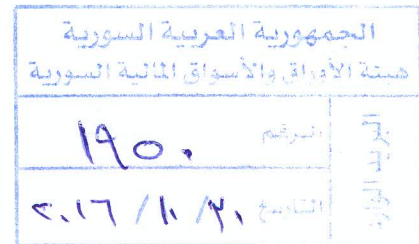 الجمهورية العربية السورية
هيئة الأوراق والأسواق المالية السورية
البريد الوارد
الرقم ١٩٥٠
التاريخ ٣٠ / ١٠ / ٢٠١٦